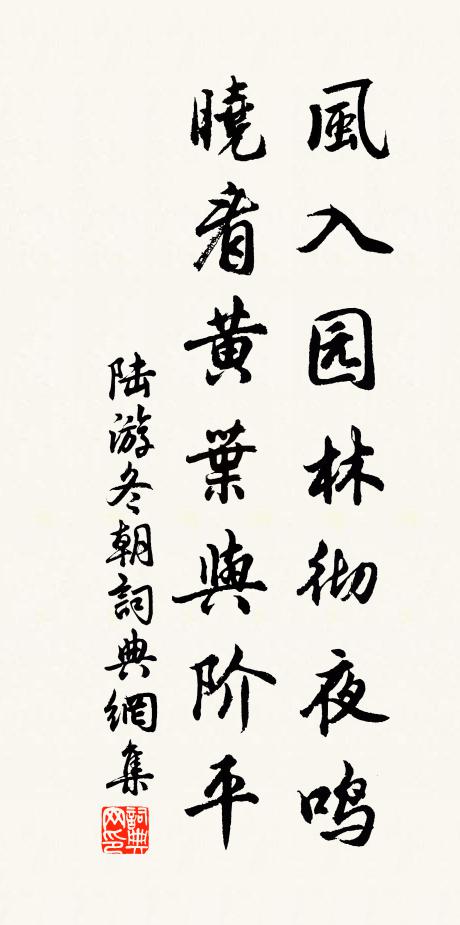 風入园林彻夜鸣
曉看黄葉與阶平
陆游冬朝詞典網集
詞典网印